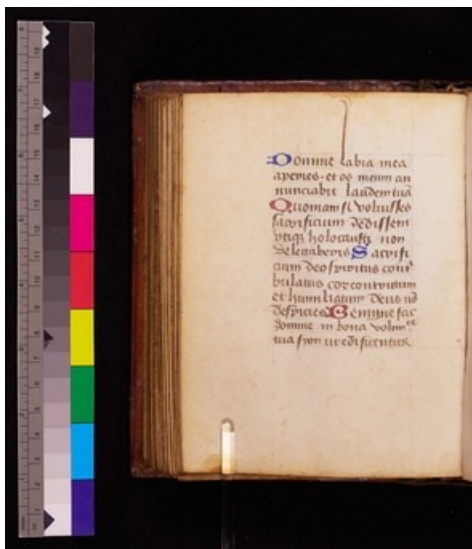 Domine labia mea
aperies · et os meum an
nunciabit laudem tuā
Quoniam si voluisses
sacrificium dedissem
vtiqȝ holocaustis non
delectaberis Sacrifi
cium deo spiritus cont
bulatus cor contritum
et humiliatum deus nō
despicies Benigne fac
domine in bona volunte
tua syon ut edificentur